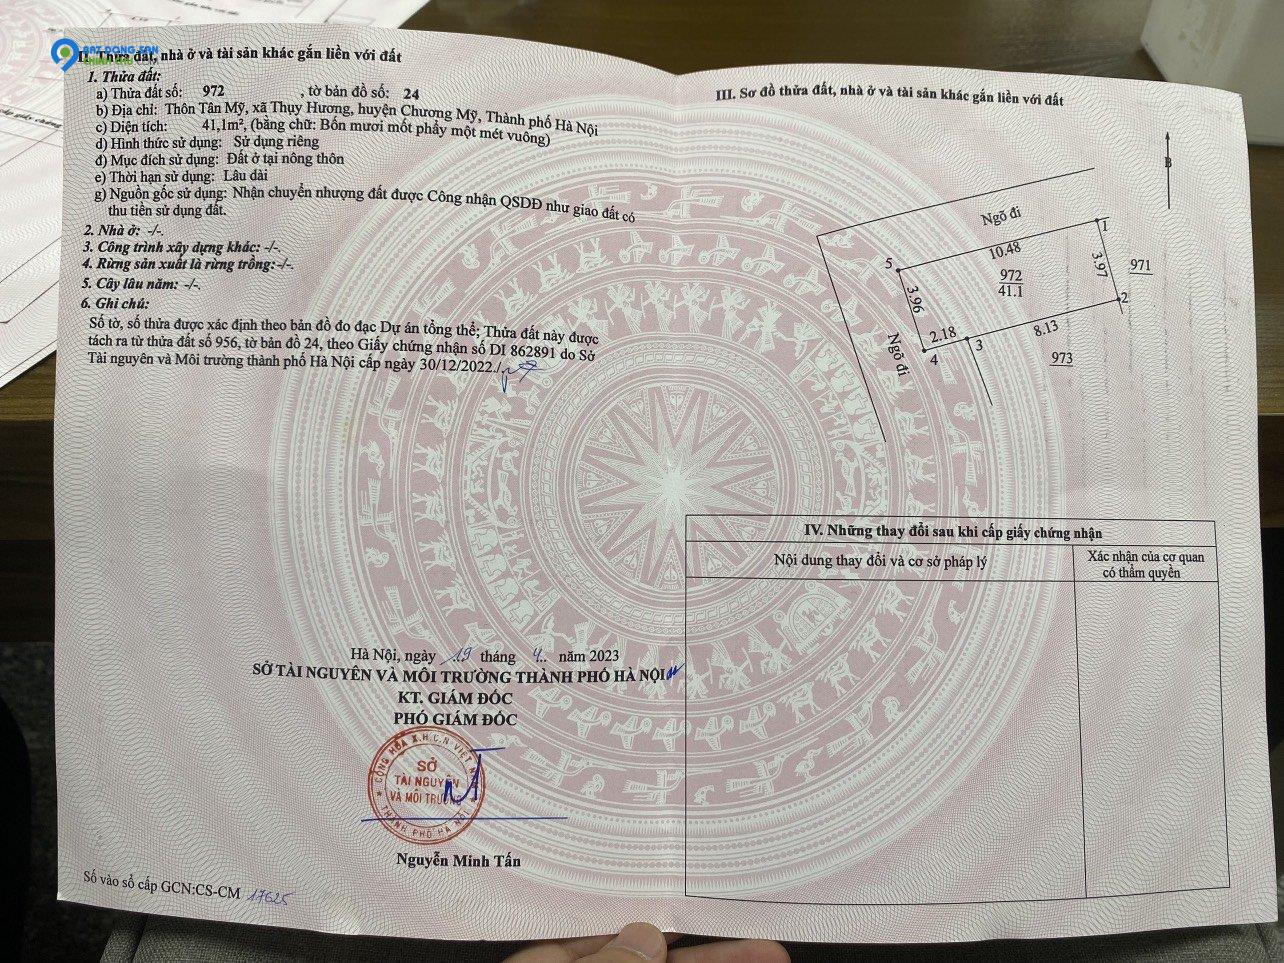 BAT DONG SAN
II. Thửa đất, nhà ở và tài sản khác gắn liền với đất
1. Thửa đất:
a) Thửa đất số: 972 , tờ bản đồ số: 24
b) Địa chỉ: Thôn Tân Mỹ, xã Thụy Hương, huyện Chương Mỹ, Thành phố Hà Nội
c) Diện tích: 41,1m², (bằng chữ: Bốn mươi mốt phẩy một mét vuông)
d) Hình thức sử dụng: Sử dụng riêng
đ) Mục đích sử dụng: Đất ở tại nông thôn
e) Thời hạn sử dụng: Lâu dài
g) Nguồn gốc sử dụng: Nhận chuyển nhượng đất được Công nhận QSDĐ như giao đất có
thu tiền sử dụng đất.
2. Nhà ở: -/-.
3. Công trình xây dựng khác: -/-.
4. Rừng sản xuất là rừng trồng:-/-.
5. Cây lâu năm: -/-.
6. Ghi chú:
Số tờ, số thửa được xác định theo bản đồ đo đạc Dự án tổng thể; Thửa đất này được
tách ra từ thửa đất số 956, tờ bản đồ 24, theo Giấy chứng nhận số DI 862891 do Sở
Tài nguyên và Môi trường thành phố Hà Nội cấp ngày 30/12/2022./.
Hà Nội, ngày 19 tháng 4 năm 2023
SỞ TÀI NGUYÊN VÀ MÔI TRƯỜNG THÀNH PHỐ HÀ NỘI
KT. GIÁM ĐỐC
PHÓ GIÁM ĐỐC
CỘNG HÒA X.H.C.N VIỆT NAM
SỞ
TÀI NGUYÊN
VÀ MÔI TRƯỜNG
THÀNH PHỐ HÀ NỘI
Nguyễn Minh Tấn
Số vào sổ cấp GCN:CS-CM 17625
III. Sơ đồ thửa đất, nhà ở và tài sản khác gắn liền với đất
B
Ngõ đi
1
10.48
5
972
41.1
3.97
971
3.96
2
2.18
3
8.13
4
973
Ngõ đi
IV. Những thay đổi sau khi cấp giấy chứng nhận
Nội dung thay đổi và cơ sở pháp lý
Xác nhận của cơ quan
có thẩm quyền